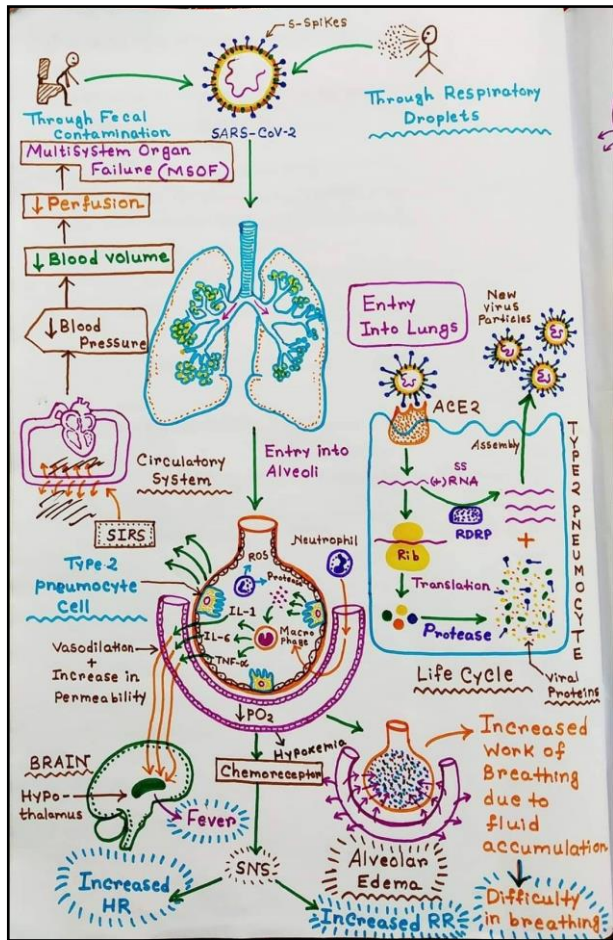 S-Spikes
Through Fecal
Contamination
SARS-CoV-2
Through Respiratory
Droplets
Multisystem Organ
Failure (MSOF)
↓ Perfusion
↓ Blood volume
↓ Blood
Pressure
Circulatory
System
SIRS
Entry into
Alveoli
Entry
Into Lungs
New
virus
Particles
ACE2
Assembly
SS
(+)RNA
RDRP
+
Rib
Translation
Protease
Viral
Proteins
TYPE 2 PNEUMOCYTE
Life Cycle
Type-2
pneumocyte
Cell
ROS
Protease
Neutrophil
IL-1
IL-6
TNF-α
Macro
phage
Vasodilation
+
Increase in
Permeability
↓PO2
Hypoxemia
Chemoreceptor
BRAIN
Hypo
thalamus
Fever
SNS
Increased
HR
Increased RR
Alveolar
Edema
Increased
Work of
Breathing
due to
fluid
accumulation
Difficulty
in breathing